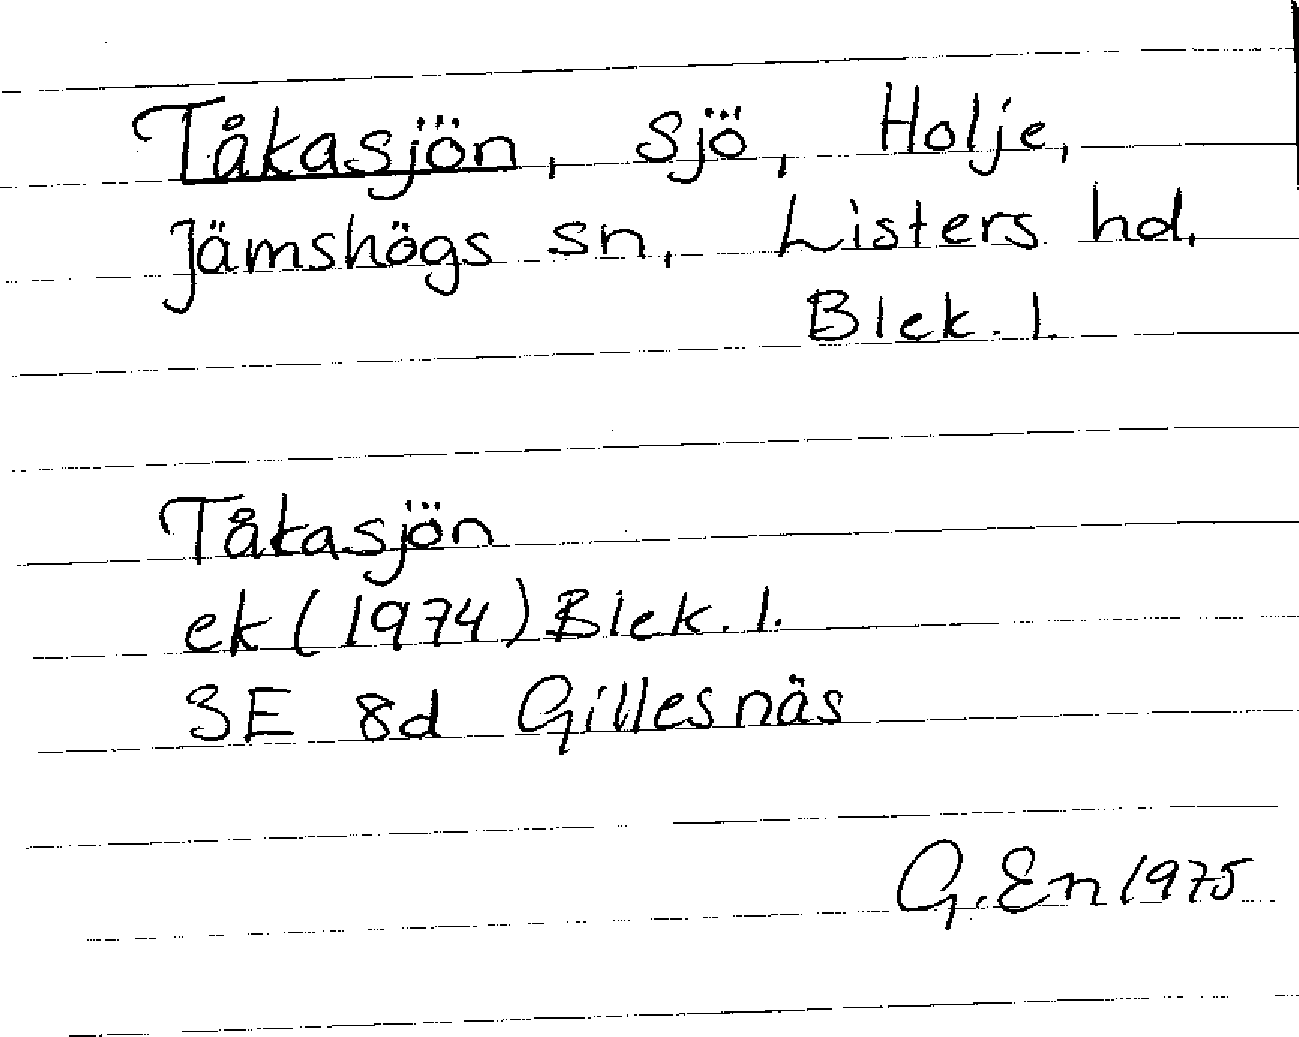 Tåkasjön, Sjö, Holje,
Jämshögs sn, Listers hd,
Blek. l.
Tåkasjön
ek (1974) Blek. l.
3E 8d Gillesnäs
G. En 1975